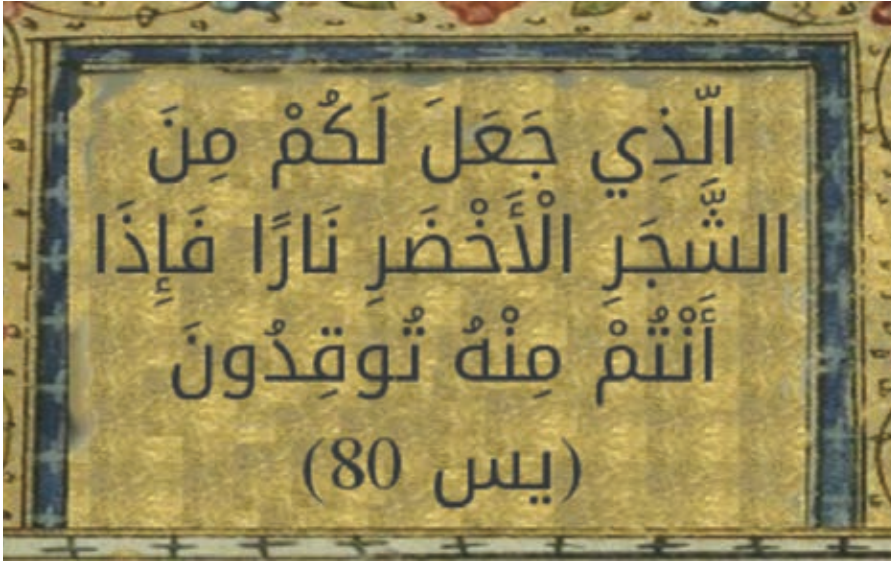 الَّذِي جَعَلَ لَكُمْ مِنَ
الشَّجَرِ الْأَخْضَرِ نَارًا فَإِذَا
أَنْتُمْ مِنْهُ تُوقِدُونَ
(يس 80)